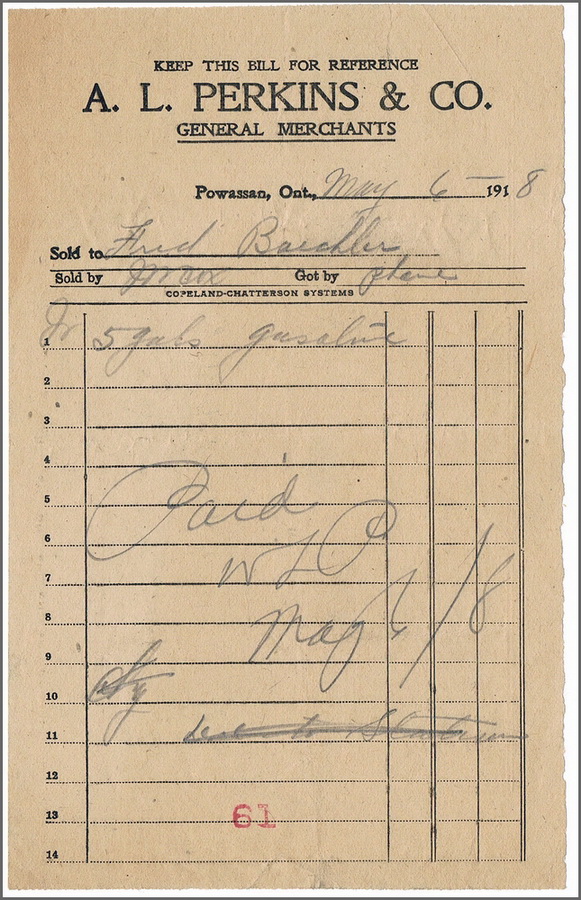 KEEP THIS BILL FOR REFERENCE
A. L. PERKINS & CO.
GENERAL MERCHANTS
Powassan, Ont., May 6 — 1918
Sold to Fred Baechler
Sold by Got by phone
COPELAND-CHATTERSON SYSTEMS
1 5 gals gasoline
2
3
4
Paid
5
6
W L P
7
8 May 6/18
9
10
11
12
13 61
14